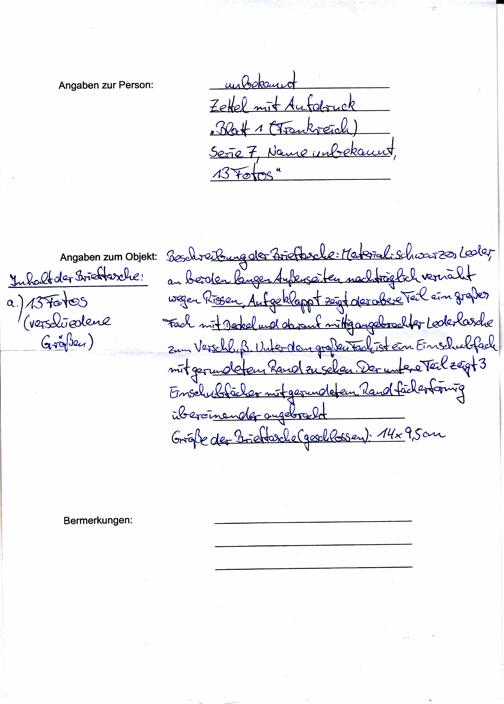 Angaben zur Person: unbekannt
Zettel mit Aufdruck
„Blatt 1 (Frankreich)
Serie 7, Name unbekannt,
13 Fotos"
Angaben zum Objekt: Beschreibung der Brieftasche: Material: schwarzes Leder,
an beiden langen Außenseiten nachträglich vernäht
wegen Rissen. Aufgeklappt zeigt der obere Teil ein großes
Fach mit Deckel und darauf mittig angebrachter Lederlasche
zum Verschluß. Unter dem großen Fach ist ein Einschubfach
mit gerundetem Rand zu sehen. Der untere Teil zeigt 3
Einschubfächer mit gerundetem Rand fächerförmig
übereinander angebracht
Größe der Brieftasche (geschlossen): 14 x 9,5 cm
Inhalt der Brieftasche:
a.) 13 Fotos
(verschiedene
Größen)
Bermerkungen: